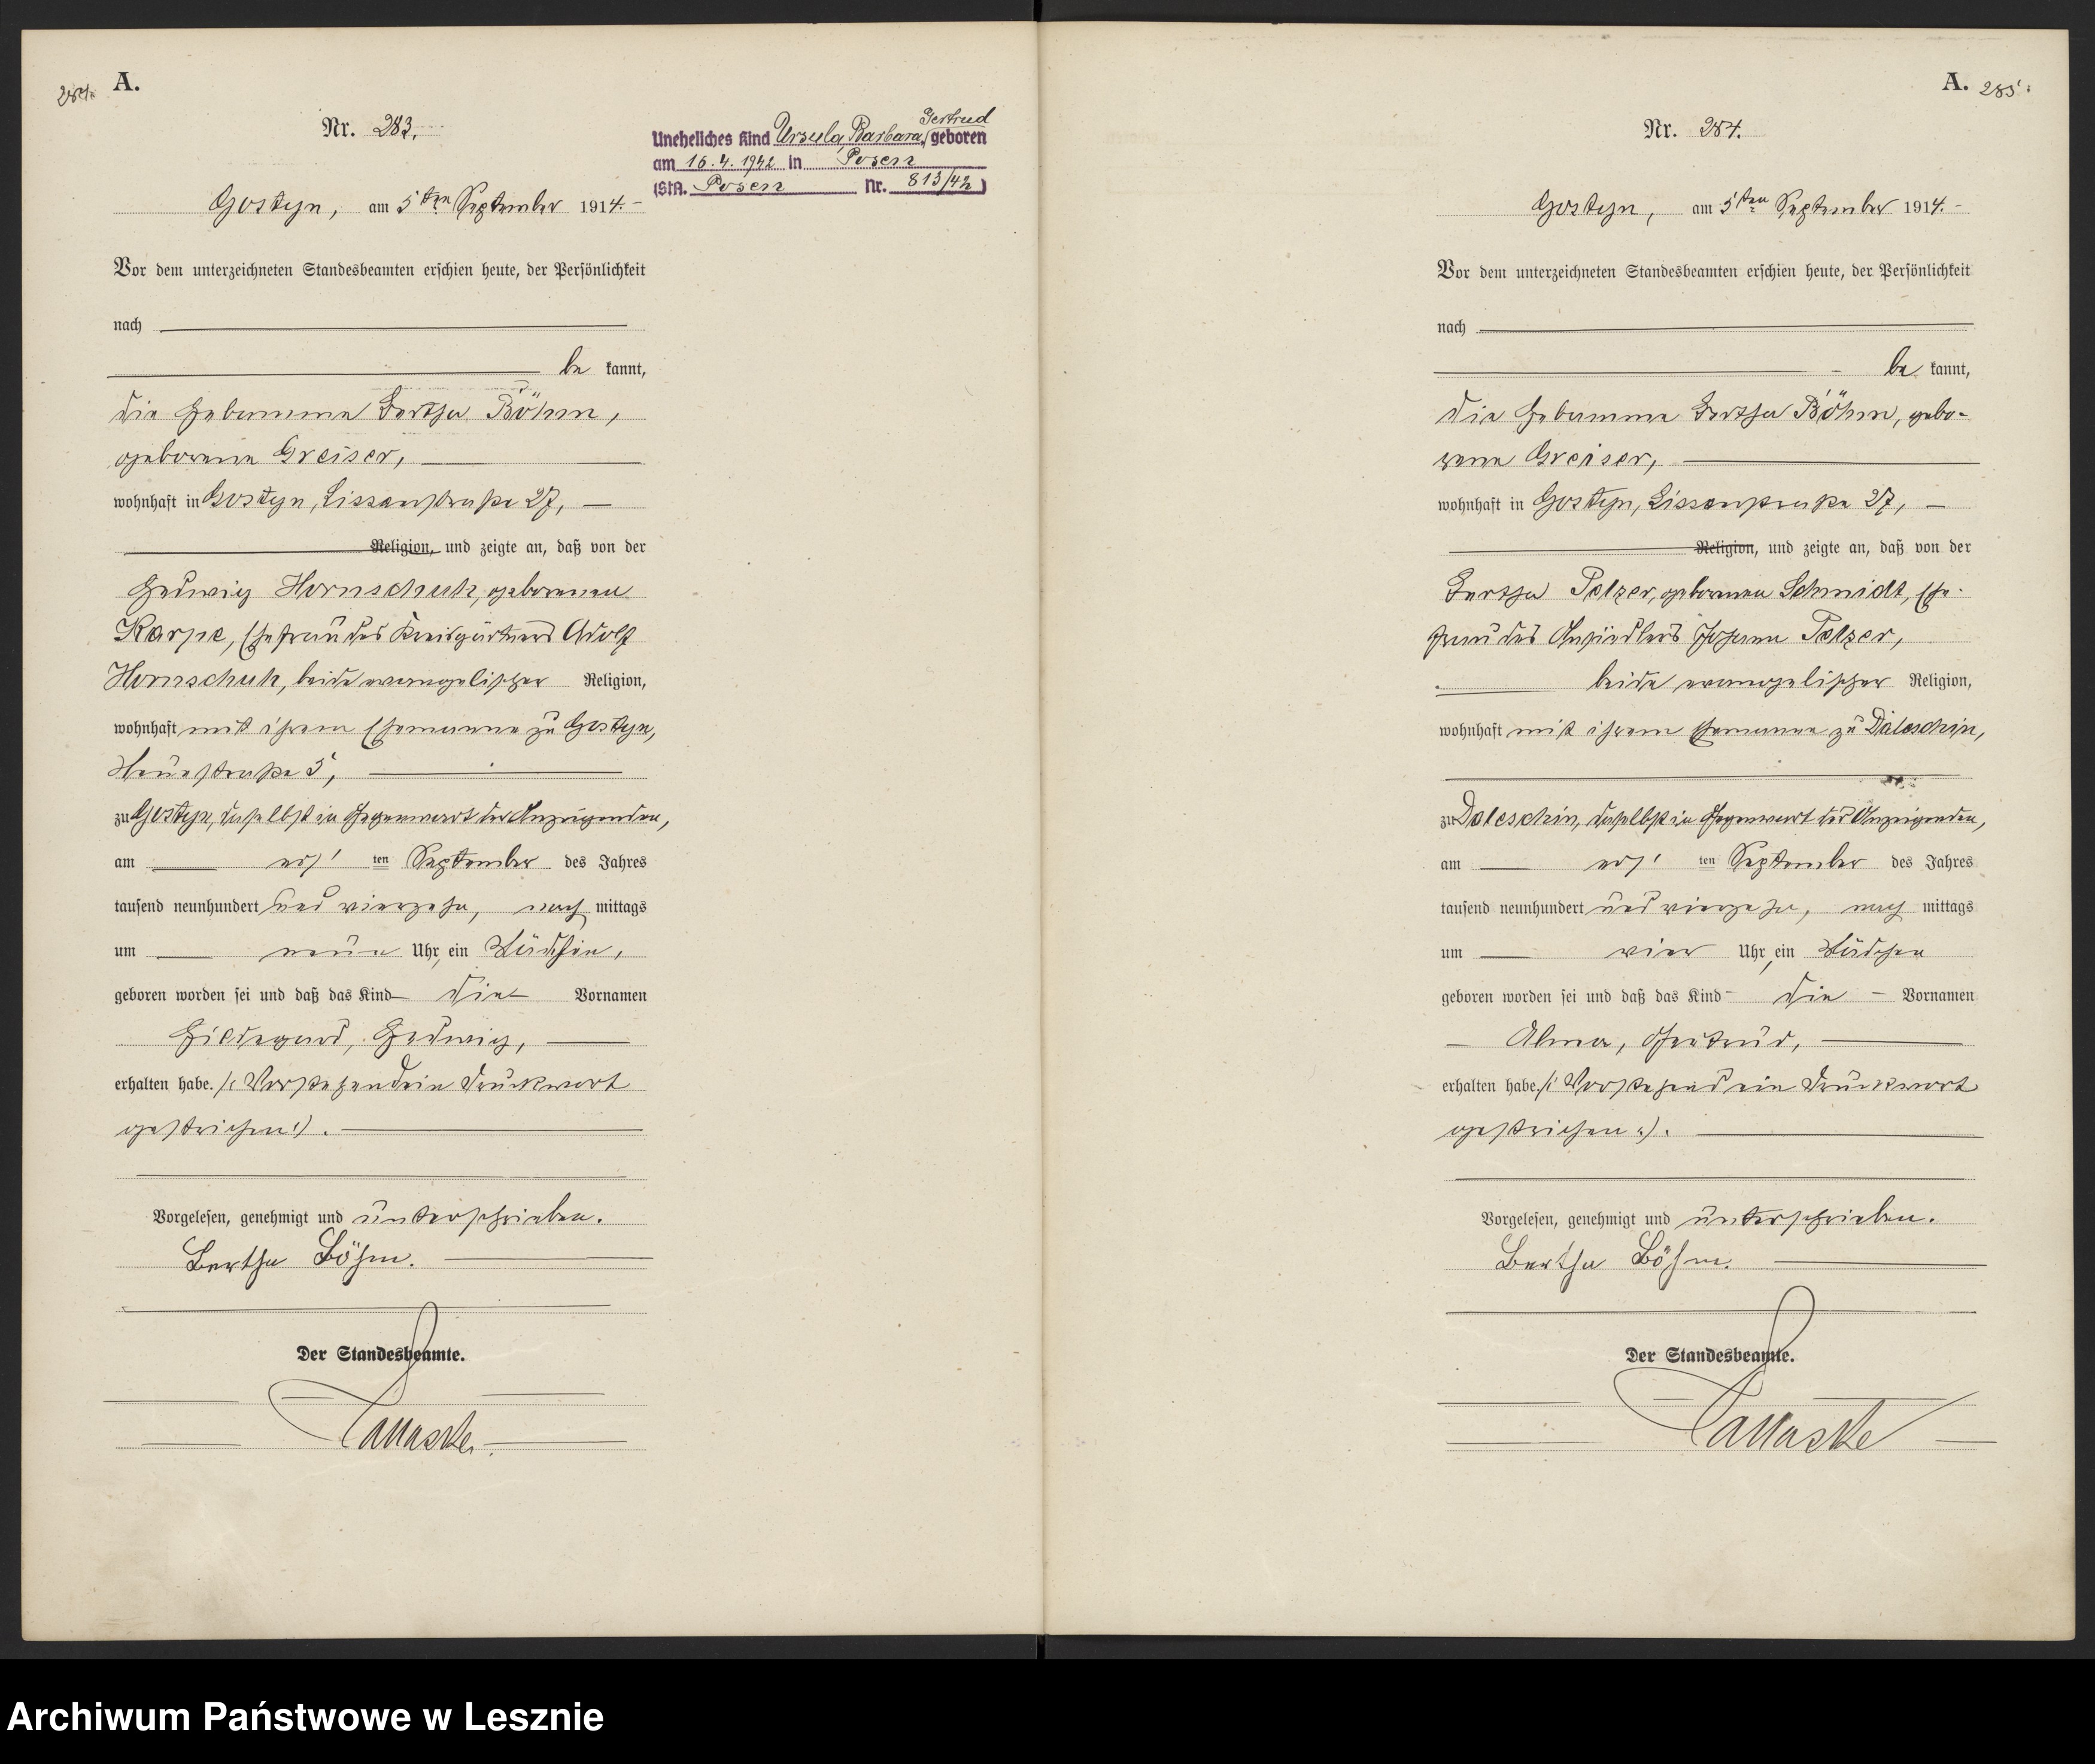 284.
A.
Nr. 283.
Gertrud
Uneheliches Kind Ursula Barbara, geboren
am 16.4.1942 in Posen
(StA. Posen Nr. 813/42)
Gostyn, am 5ten September 1914.
Vor dem unterzeichneten Standesbeamten erschien heute, der Persönlichkeit
nach
be kannt,
die Hebamme Bertha Böhm,
geborene Greiser,
wohnhaft in Gostyn, Lissaerstraße 27,
Religion, und zeigte an, daß von der
Hedwig Hornschuh, geborenen
Karpe, Ehefrau des Kreisgärtners Adolf
Hornschuh, beide evangelischer Religion,
wohnhaft mit ihrem Ehemanne zu Gostyn,
Neuestraße 5,
zu Gostyn, daselbst in Gegenwart der Anzeigenden,
am ers ten September des Jahres
tausend neunhundert und vierzehn, nach mittags
um neun Uhr, ein Mädchen,
geboren worden sei und daß das Kind die Vornamen
Hildegard, Hedwig,
erhalten habe. /: Vorstehend ein Druckwort
gestrichen :/.
Vorgelesen, genehmigt und unterschrieben.
Bertha Böhm.
Der Standesbeamte.
A. 285.
Nr. 284.
Gostyn, am 5ten September 1914.
Vor dem unterzeichneten Standesbeamten erschien heute, der Persönlichkeit
nach
be kannt,
die Hebamme Bertha Böhm, gebo-
rene Greiser,
wohnhaft in Gostyn, Lissaerstraße 27,
Religion, und zeigte an, daß von der
Bertha Pelzer, geborenen Schmidt, Ehe-
frau des Ansiedlers Johann Pelzer,
beide evangelischer Religion,
wohnhaft mit ihrem Ehemanne zu Daleschin,
zu Daleschin, daselbst in Gegenwart der Anzeigenden,
am ers ten September des Jahres
tausend neunhundert und vierzehn, nach mittags
um vier Uhr, ein Mädchen
geboren worden sei und daß das Kind die Vornamen
Alma, Gertrud,
erhalten habe. /: Vorstehend ein Druckwort
gestrichen :/.
Vorgelesen, genehmigt und unterschrieben.
Bertha Böhm.
Der Standesbeamte.
Archiwum Państwowe w Lesznie